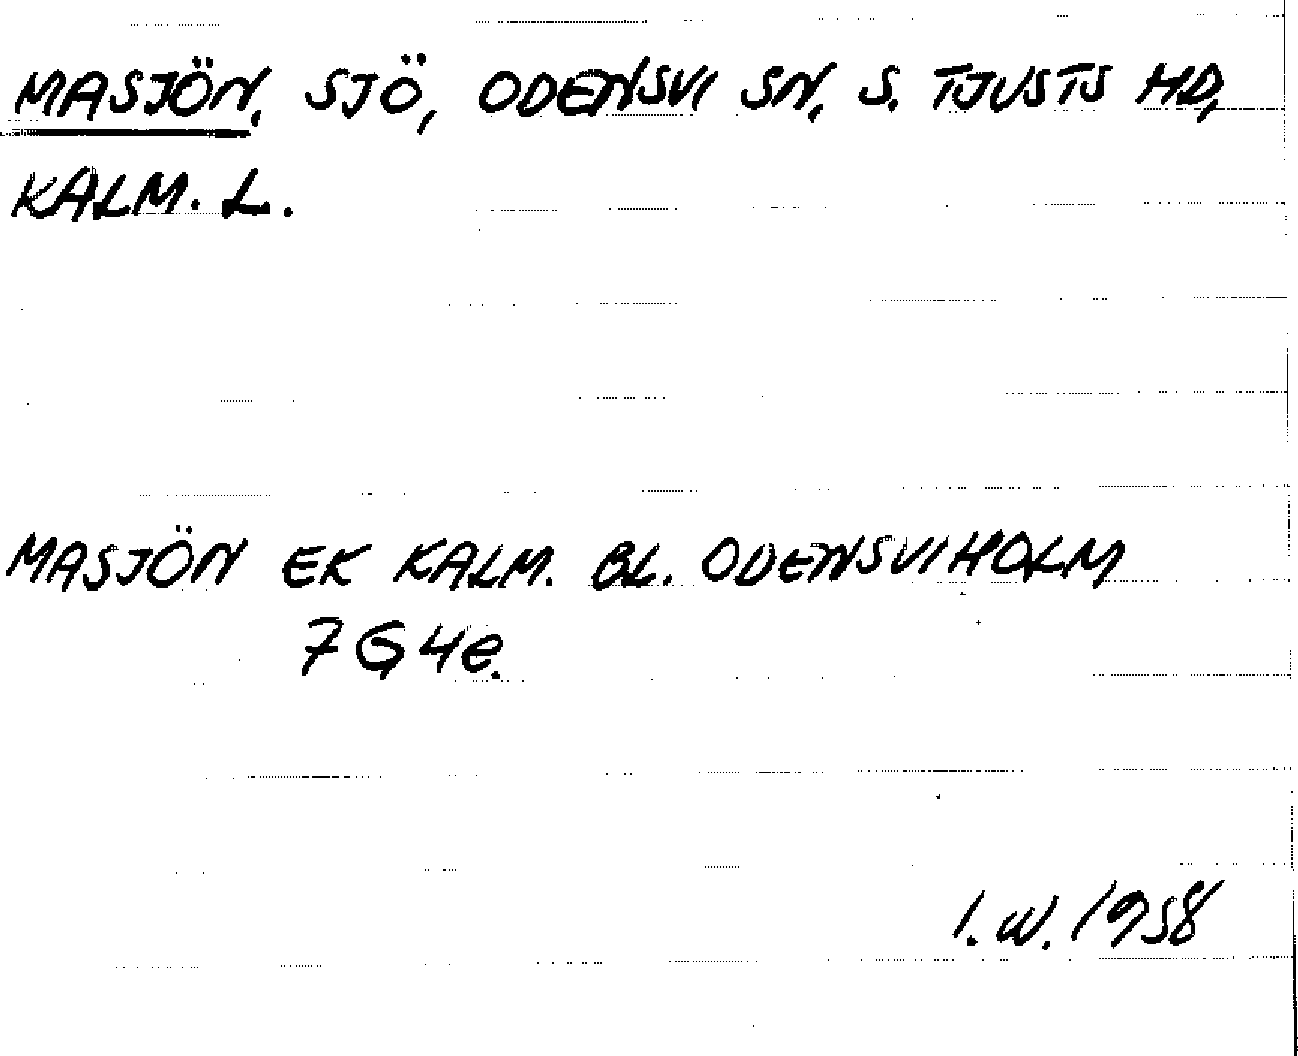 MASJÖN, SJÖ, ODENSVI SN, S. TJUSTS HD,
KALM. L.
MASJÖN EK KALM. BL. ODENSVIHOLM
7G4e.
I.W. 1958